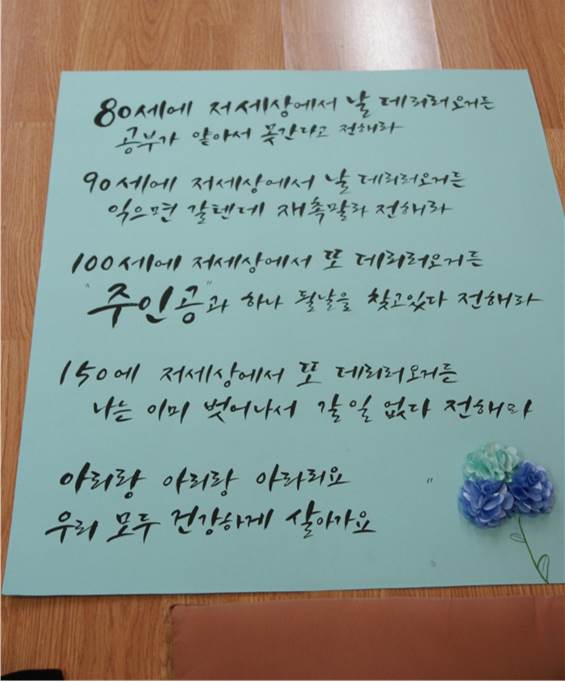 80세에 저세상에서 날 데리러오거든
공부가 얕아서 못간다고 전해라
90세에 저세상에서 날 데리러오거든
익으면 갈텐데 재촉말라 전해라
100세에 저세상에서 또 데리러오거든
"주인공"과 하나 될날을 찾고있다 전해라
150에 저세상에서 또 데리러오거든
나는 이미 벗어나서 갈일 없다 전해라
아리랑 아리랑 아라리요
우리 모두 건강하게 살아가요